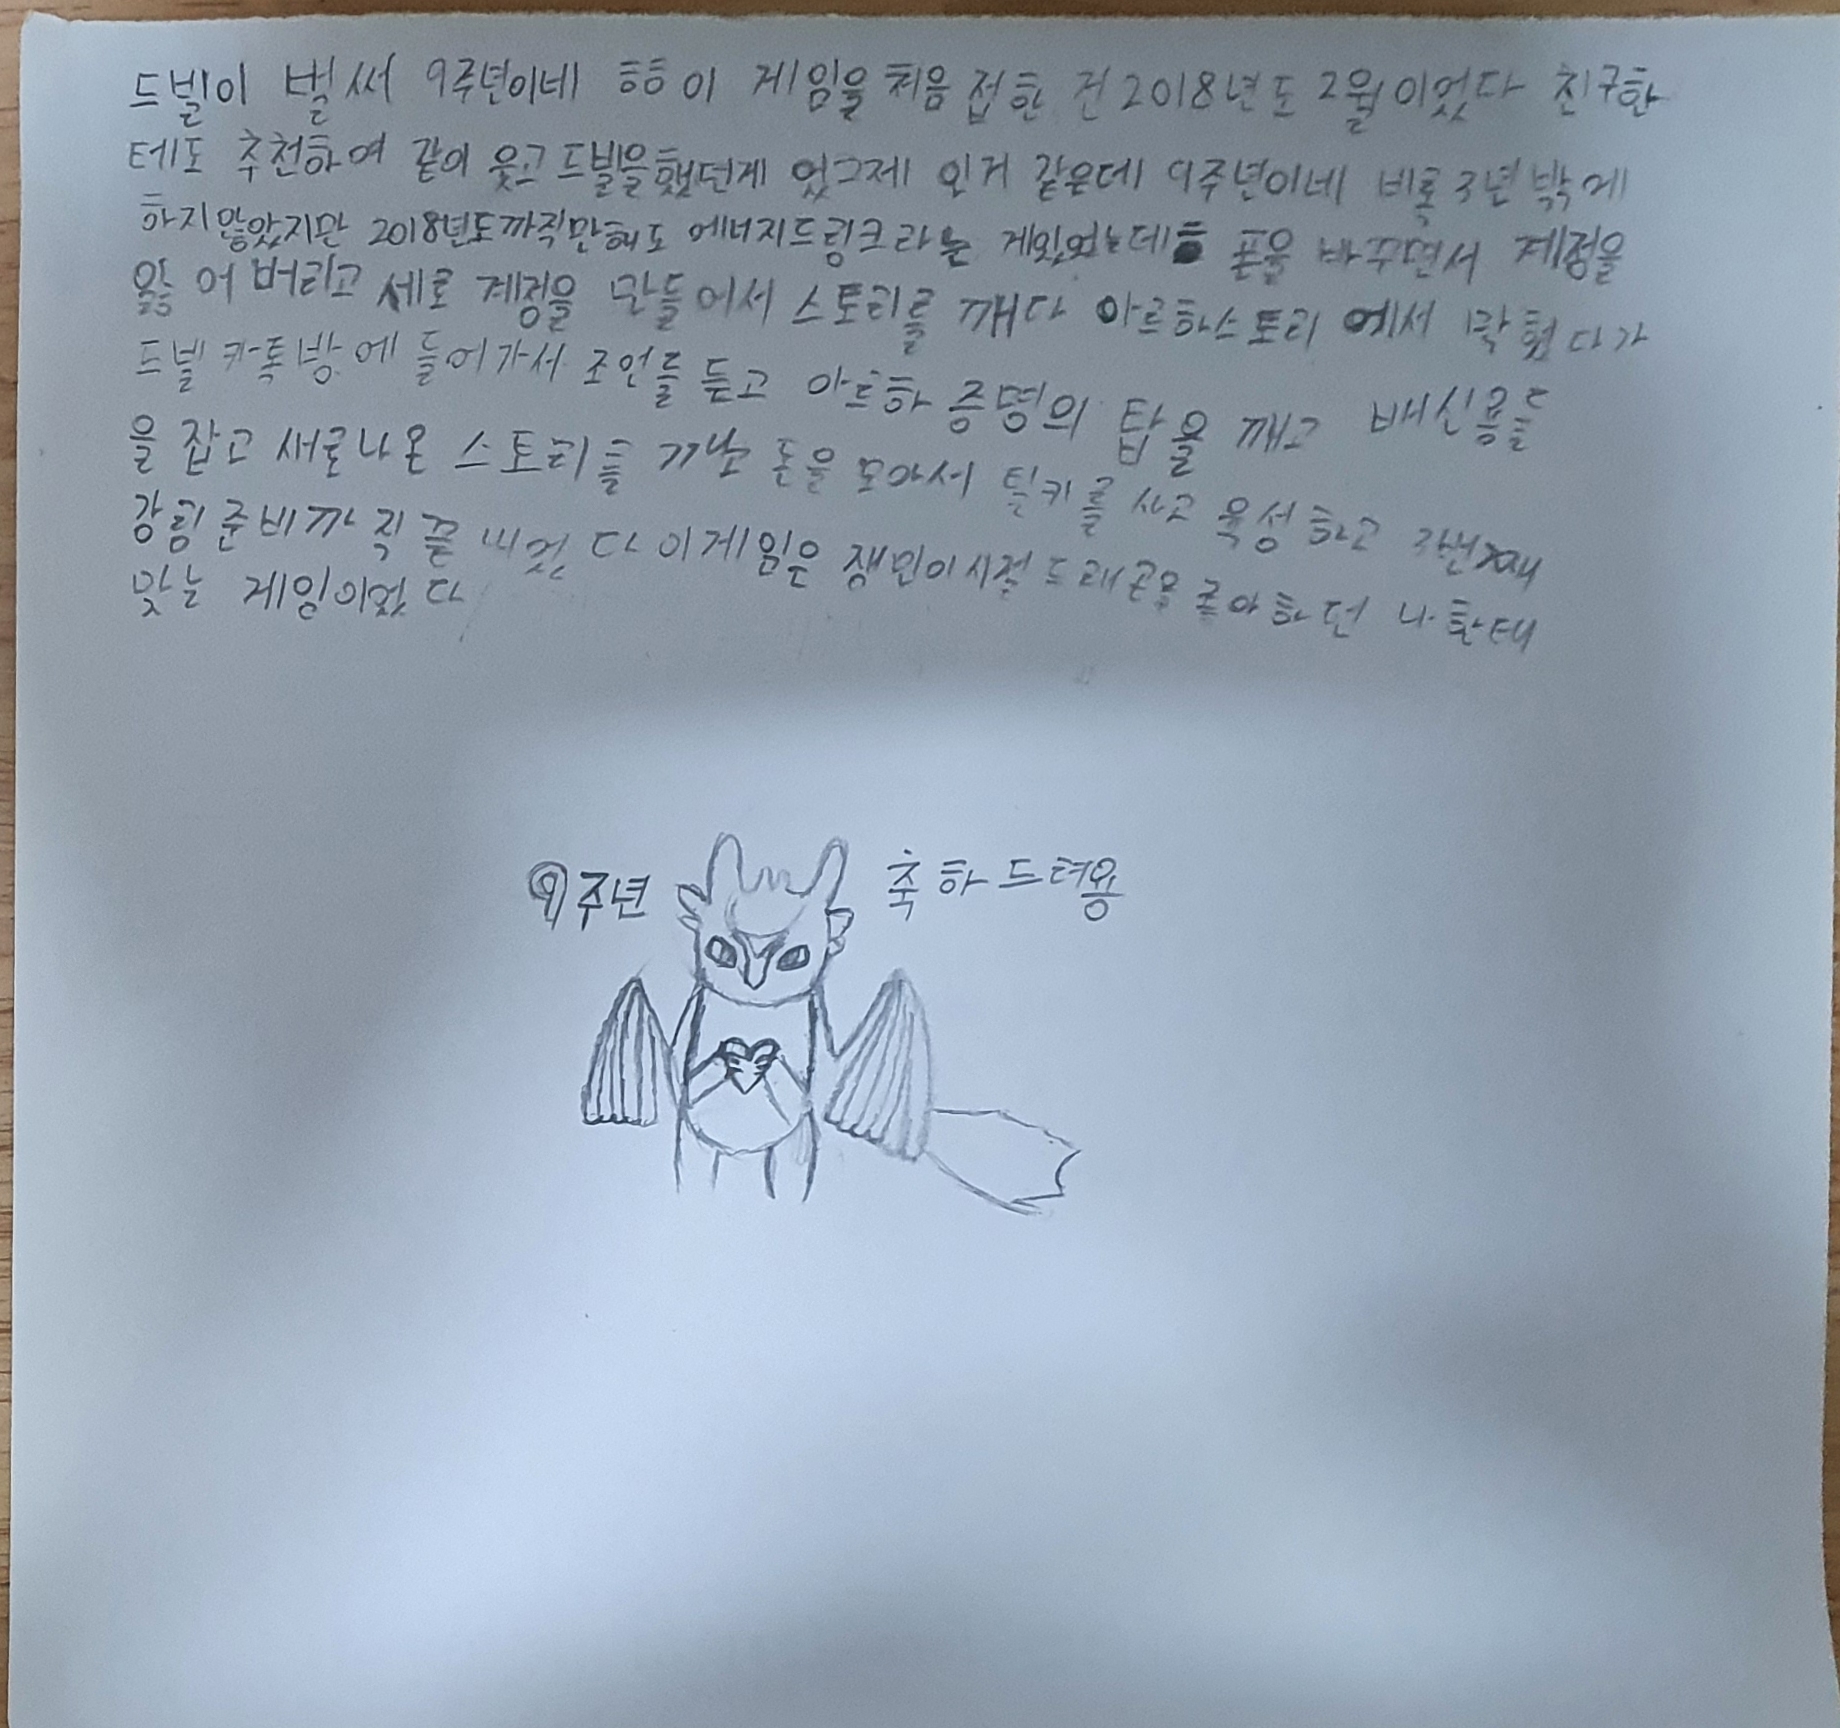 드빌이 벌써 9주년이네 흠흠 이 게임을 처음 접한 건 2018년도 2월이었다 친구한
테도 추천하여 같이 웃고 드빌을 했던게 엇그제 인거 같은데 9주년이네 비록 3년 밖에
하지않았지만 2018년도까직만해도 에너지드링크라는 게있었는데 폰을 바꾸면서 계정을
잃어 버리고 세로 계정을 만들어서 스토리를 깨다 아르하스토리 에서 막혔다가
드빌 카톡방에 들어가서 조언를 듣고 아르하 증명의 탑을 깨고 배신용들
을 잡고 새로나온 스토리를 깨고 돈을 모아서 틸키를 사고 육성하고 3번째
강림준비까직 끝내었다 이게임은 잼민이시절 드래곤을 좋아하던 나한테
맞는 게임이었다
9주년 축하드려용